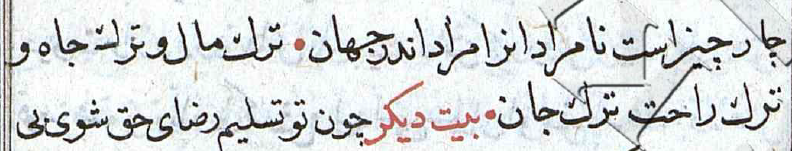 چار چیز است نامرادانرا مراد اندر جهان • ترك مال و ترك جاه و
ترك راحت ترك جان • بیت دیكر چون تو تسلیم رضای حق شوی بی